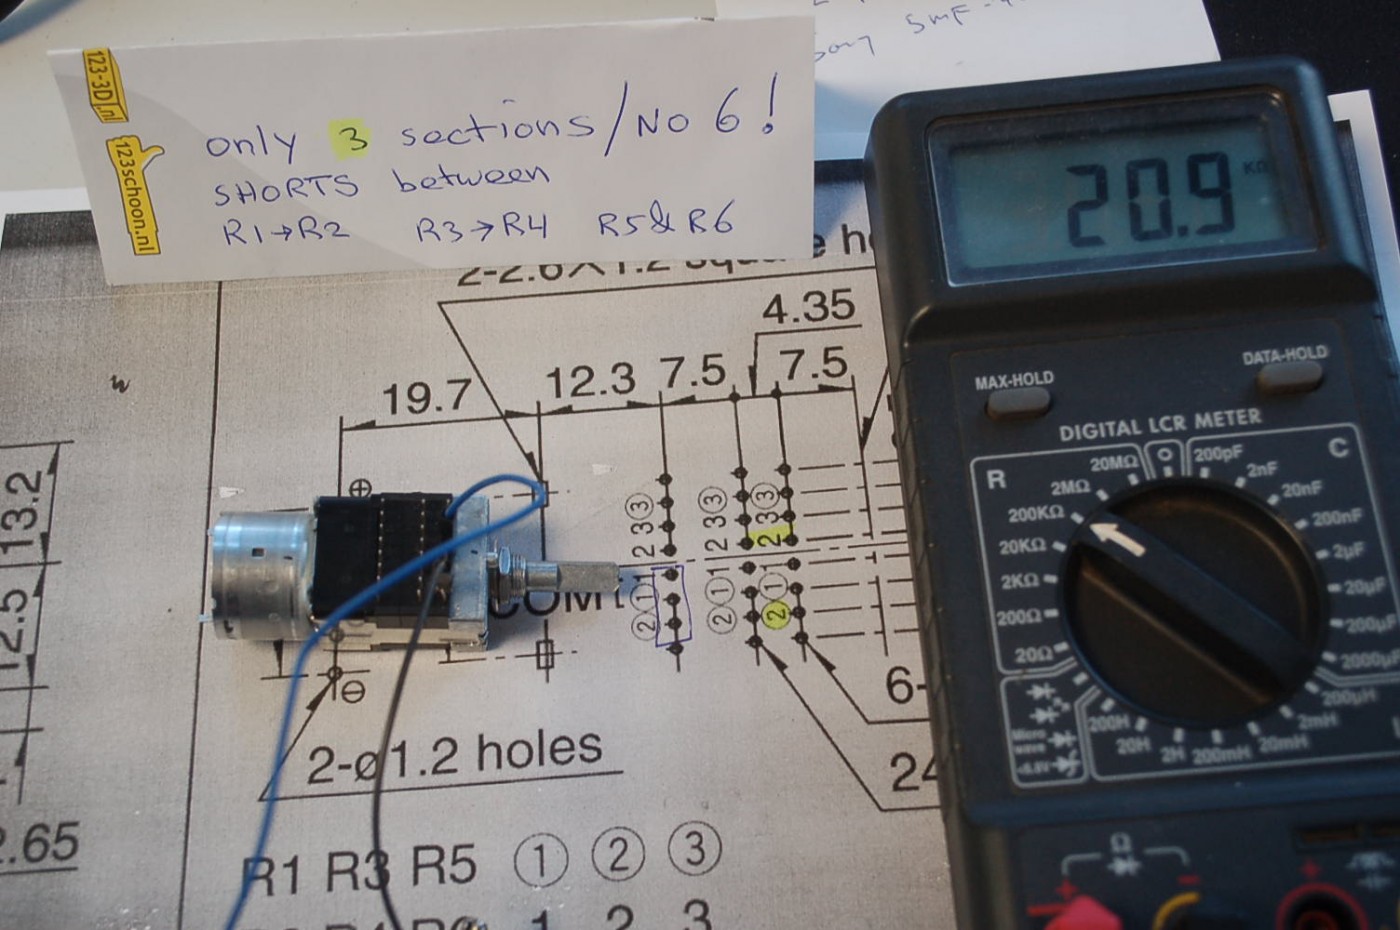 5mF
123-3D.nl
123schoon.nl
only 3 sections/No 6!
SHORTS between
R1→R2 R3→R4 R5&R6
4.35
19.7 12.3 7.5 7.5
13.2
12.5
2 3 ③ 2 3 ③ 2 3 ③
② ① 1 ② ① 1 ② ① 1
⊕
⊖
COM
2-ø1.2 holes
6-
24
.65
R1 R3 R5 ① ② ③
1 2 3
20.9 KΩ
MAX-HOLD
DATA-HOLD
DIGITAL LCR METER
R
C
20MΩ
2MΩ
200KΩ
20KΩ
2KΩ
200Ω
20Ω
O
200pF
2nF
20nF
200nF
2µF
20µF
200µF
2000µF
200µH
2mH
20mH
200mH
2H
20H
200H
Ω
+
-
+